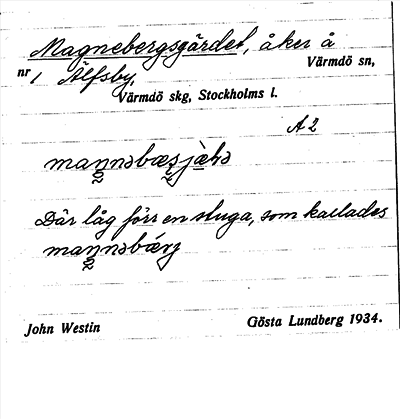 Magnebergsgärdet, åker å
nr 1 Älfsby. Värmdö sn,
Värmdö skg, Stockholms l.
A 2
Där låg förr en stuga, som kallades
John Westin Gösta Lundberg 1934.